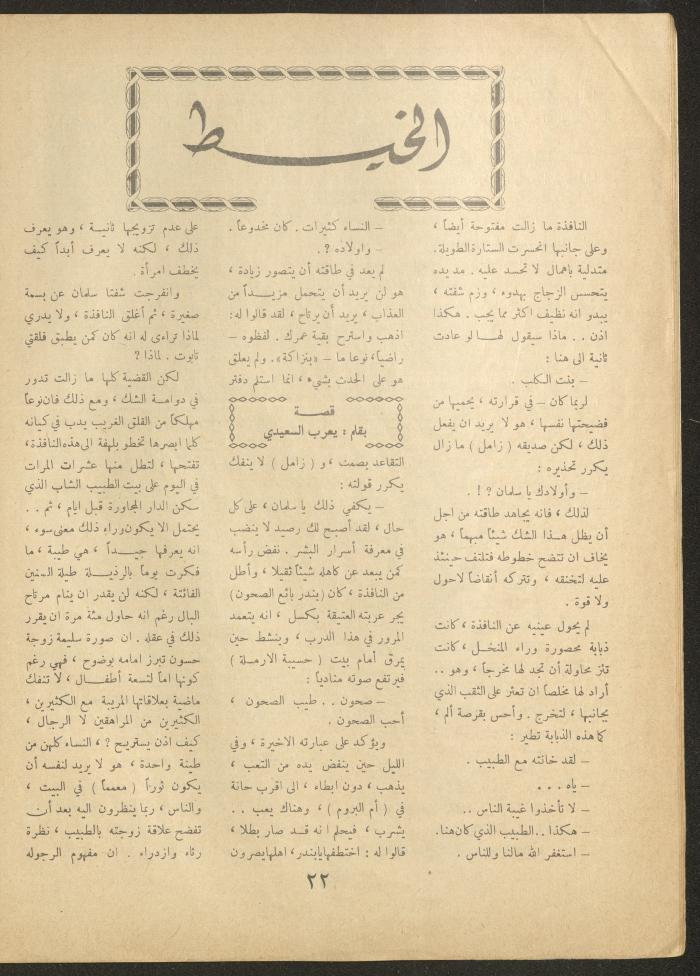 الخيط
النافذة ما زالت مفتوحة أيضاً ،
وعلى جانبها انحسرت الستارة الطويلة.
متدلية باهمال لا تحسد عليه . مد يده
يتحسس الزجاج بهدوء ، وزم شفته ،
يبدو انه نظيف اكثر مما يجب . هكذا
اذن . . ماذا سيقول لهـا لو عادت
ثانية الى هنا :
ـ بنت الكلب .
لربما كان – في قرارته ، يحميها من
فضيحتها نفسها ، هو لا يريد ان يفعل
ذلك ، لكن صديقه ( زامل ) ما زال
يكرر تحذيره :
ـ وأولادك يا سلمان ? ! .
لذلك ، فانه يجاهد طاقته من اجل
أن يظل هـذا الشك شيئاً مبهماً ، هو
يخاف ان تتضح خطوطه فتلتف حينئذ
عليه لتخنقه ، وتتركه أنقاضاً لاحول
ولا قوة .
لم يحول عينيه عن النافذة ، كانت
ذبابة محصورة وراء المنخـل ، كانت
تئز محاولة أن تجد لها مخرجاً ، وهو . .
أراد لها مخلصاً ان تعثر على الثقب الذي
بجانبها ، لتخرج . وأحس بقرصة ألم ،
كما هذه الذبابة تطير :
ـ لقد خانته مع الطبيب .
ـ ياه . . . .
ـ لا تأخذوا غيبة الناس . .
ـ هكذا . . الطبيب الذي كان هنا.
ـ استغفر الله مالنا وللناس .
ـ النساء كثيرات . كان مخدوعاً .
ـ واولاده ? .
لم يعد في طاقته أن يتصور زيادة ،
هو لن يريد أن يتحمل مزيـداً من
العذاب ، يريد أن يرتاح ، لقد قالوا له:
اذهب واسترح بقية عمرك . لفظوه –
راضياً ، نوعا ما – «بنزاكة». ولم يعلق
هو على الحدث بشيء ، انما استلم دفتر
قصـــة
بقلم : يعرب السعيدي
التقاعد بصمت ، و ( زامل ) لا ينفك
يكرر قولته :
ـ يكفي ذلك يا سلمان ، على كل
حال ، لقد أصبح لك رصيد لا ينضب
في معرفة أسرار البشر . نفض رأسه
كمن يبعد عن كاهله شيئاً ثقيلا ، وأطل
من النافذة ، كان ( بندر بائع الصحون )
يجر عربته العتيقة بكسل ، انه يتعمد
المرور في هذا الدرب ، وينشط حين
يمرق أمام بيت ( حسيبة الارملـة )
فيرتفع صوته منادياً :
ـ صحون . . طيب الصحون ،
أحب الصحون .
ويؤكد على عبارته الاخيرة ، وفي
الليل حين ينفض يده من التعب ،
يذهب ، دون ابطاء ، الى اقرب حانة
في ( أم البروم ) ، وهناك يعب . .
يشرب ، فيحلم انه قـد صار بطلا ،
قالوا له : اختطفها يا بندر، اهلها يصرون
على عدم تزويجها ثانيـة ، وهو يعرف
ذلك ، لكنه لا يعرف أبداً كيف
يخطف امرأة .
وانفرجت شفتا سلمان عن بسمة
صغيرة ، ثم أغلق النافذة ، ولا يدري
لماذا تراءى له انه كان كمن يطبق فلقتي
تابوت . لماذا ?
لكن القضية كلها ما زالت تدور
في دوامـة الشك ، ومع ذلك فان نوعاً
مهلكاً من القلق الغريب يدب في كيانه
كلما ابصرها تخطو بلهفة الى هذه النافذة،
تفتحها ، لتطل منها عشرات المرات
في اليوم على بيت الطبيب الشاب الذي
سكن الدار المجاورة قبل ايام ، ثم . .
يحتمل الا يكون وراء ذلك معنى سوء ،
انه يعرفها جيــداً ، هي طيبة ، ما
فكرت يوماً بالرذيـلة طيلة السنين
الفائتة ، لكنه لن يقدر ان ينام مرتاح
البال رغم انه حاول مئة مرة ان يقرر
ذلك في عقله . ان صورة سليمة زوجة
حسون تبرز امامه بوضوح ، فهي رغم
كونها اماً لتسعة أطفــال ، لا تنفك
ماضية بعلاقاتها المريبة مع الكثيرين ،
الكثيرين من المراهقين لا الرجال ،
كيف اذن يستريح ? ، النساء كلهن من
طينة واحدة ، هو لا يريد لنفسه أن
يكون ثوراً ( معمماً ) في البيت ،
والناس ، ربما ينظرون اليه بعد أن
تفضح علاقة زوجته بالطبيب ، نظرة
رثاء وازدراء . ان مفهوم الرجوله
٢٢